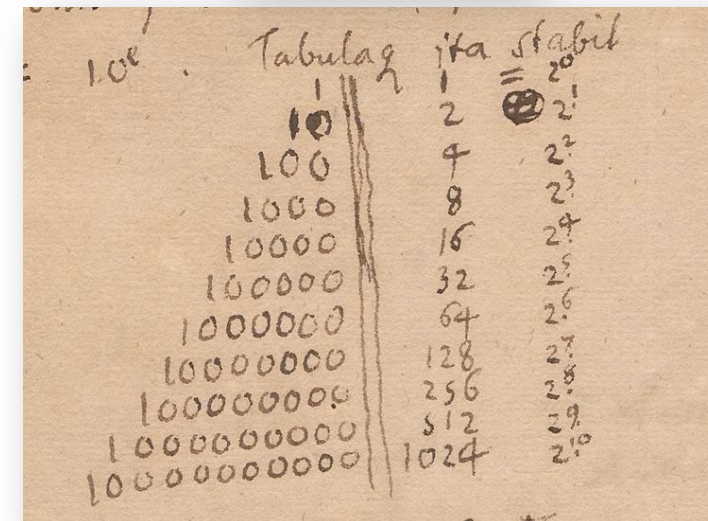 10e. Tabula ita stabit
1 1 = 2^0
10 2 2^1
100 4 2^2
1000 8 2^3
10000 16 2^4
100000 32 2^5
1000000 64 2^6
10000000 128 2^7
100000000 256 2^8
1000000000 512 2^9
10000000000 1024 2^10